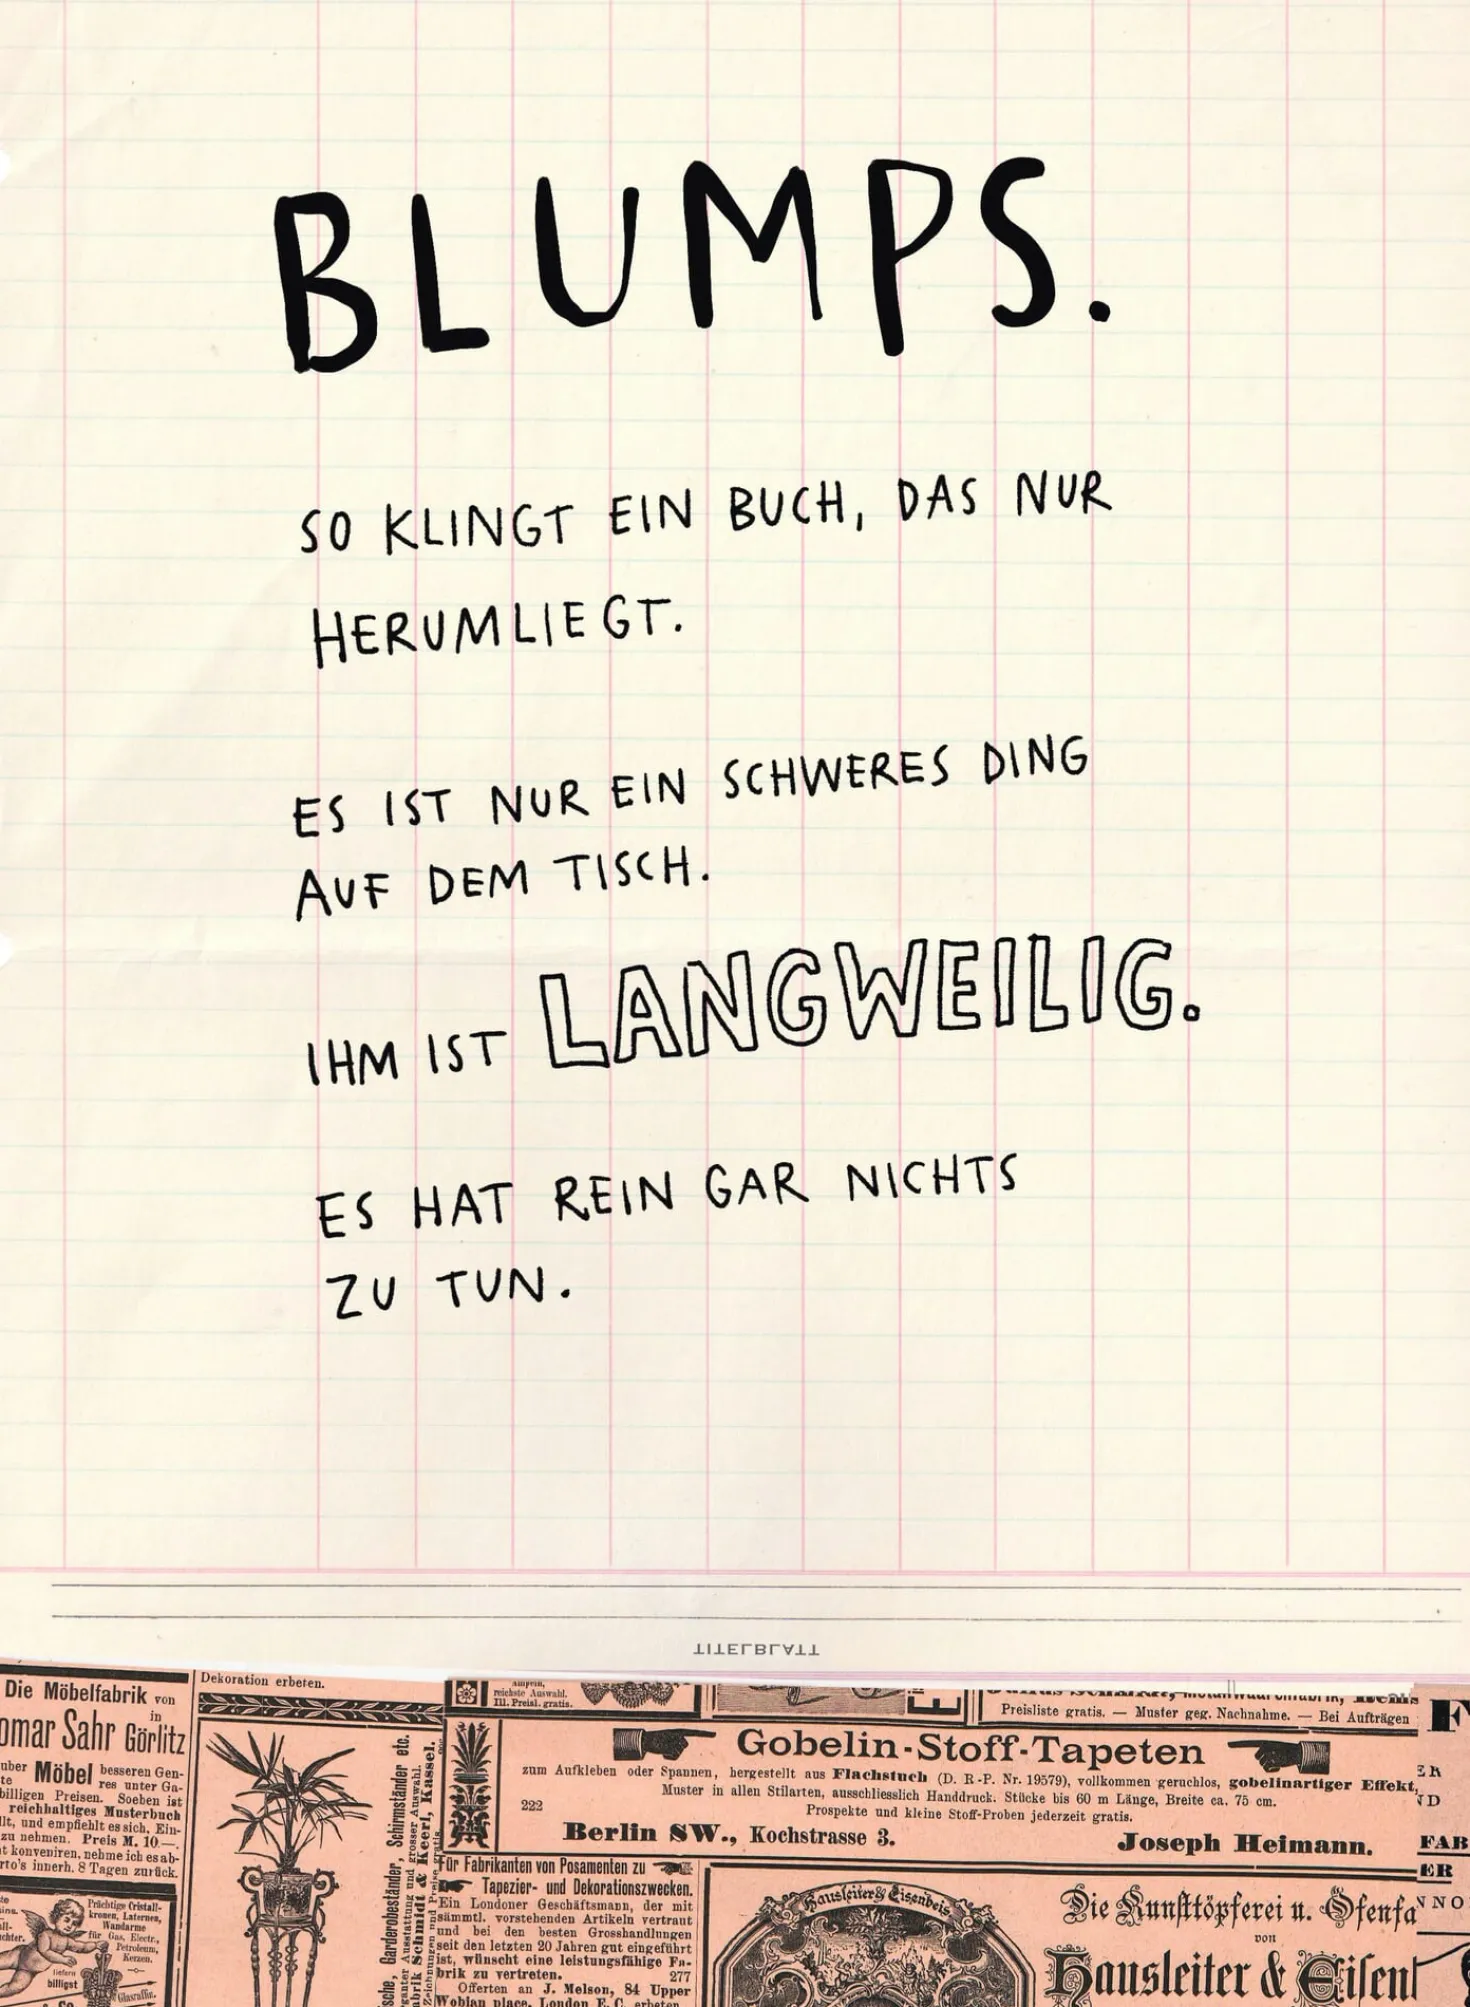 BLUMPS.
SO KLINGT EIN BUCH, DAS NUR
HERUMLIEGT.
ES IST NUR EIN SCHWERES DING
AUF DEM TISCH.
IHM IST LANGWEILIG.
ES HAT REIN GAR NICHTS
ZU TUN.
TITELBLATT
Die Möbelfabrik von
in
omar Sahr Görlitz
Möbel besseren Gen-
res unter Ga-
billigen Preisen. Soeben ist
reichhaltiges Musterbuch
und empfiehlt es sich, Ein-
zu nehmen. Preis M. 10.—.
konveniren, nehme ich es ab-
rto's innerh. 8 Tagen zurück.
Prächtige Cristall-
kronen, Laternen,
Wandarme
für Gas, Electr.,
Petroleum,
Kerzen.
liefern
billigst
Dekoration erbeten.
Garderobeständer, Schirmständer etc.
Schmidt & Keerl, Kassel.
reichste Auswahl.
Ill. Preisl. gratis.
Preisliste gratis. — Muster geg. Nachnahme. — Bei Aufträgen
Gobelin-Stoff-Tapeten
zum Aufkleben oder Spannen, hergestellt aus Flachstuch (D. R.-P. Nr. 19579), vollkommen geruchlos, gobelinartiger Effekt,
Muster in allen Stilarten, ausschliesslich Handdruck. Stücke bis 60 m Länge, Breite ca. 75 cm.
222 Prospekte und kleine Stoff-Proben jederzeit gratis.
Berlin SW., Kochstrasse 3. Joseph Heimann.
Für Fabrikanten von Posamenten zu
Tapezier- und Dekorationszwecken.
Ein Londoner Geschäftsmann, der mit
sämmtl. vorstehenden Artikeln vertraut
und bei den besten Grosshandlungen
seit den letzten 20 Jahren gut eingeführt
ist, wünscht eine leistungsfähige Fa-
brik zu vertreten. 277
Offerten an J. Melson, 84 Upper
Woblan place, London E. C. erbeten.
Hausleiter & Eisenbeis
Die Kunsttöpferei u. Ofenfa
von
Hausleiter & Eisenb
FAB
ER